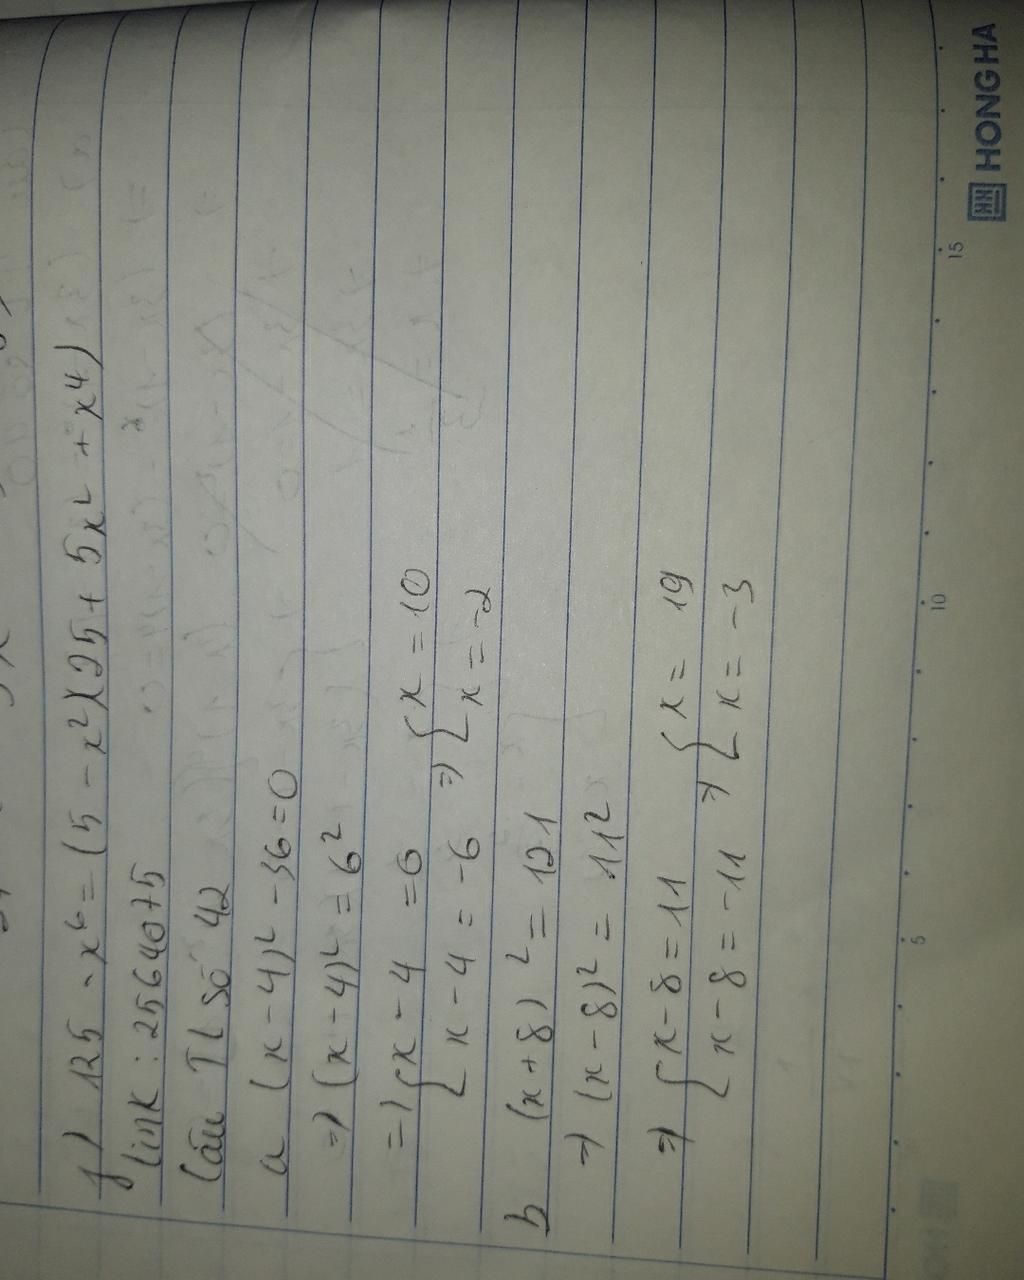 f) 125 - x⁶ = (5 - x²)(25 + 5x² + x⁴)
link : 2564075
Câu TL Số 42
a (x - 4)² - 36 = 0
=) (x - 4)² = 6²
=) { x - 4 = 6
x - 4 = -6 =) { x = 10
x = -2
b (x + 8)² = 121
=) (x - 8)² = 11²
=) { x - 8 = 11
x - 8 = -11 =) { x = 19
x = -3
5 10 15
HONG HA